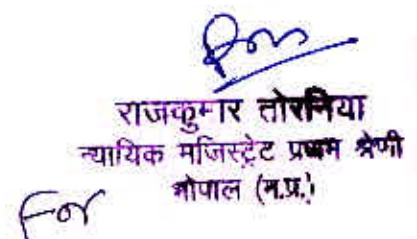 राजकुमार तोरनिया
न्यायिक मजिस्ट्रेट प्रथम श्रेणी
भोपाल (म.प्र.)
For